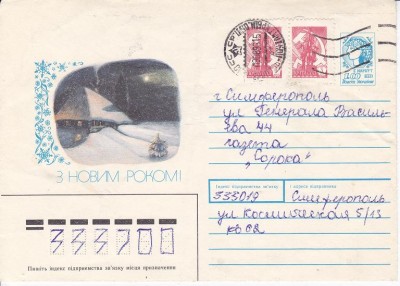 г Симферополь
ул Генерала Василь-
ева 44
газета
„Сорока"
З НОВИМ РОКОМ!
Індекс підприємства зв'язку і адреса відправника
333019 Симферополь
ул Космическая 5/13
333700
Пишіть індекс підприємства зв'язку місця призначення